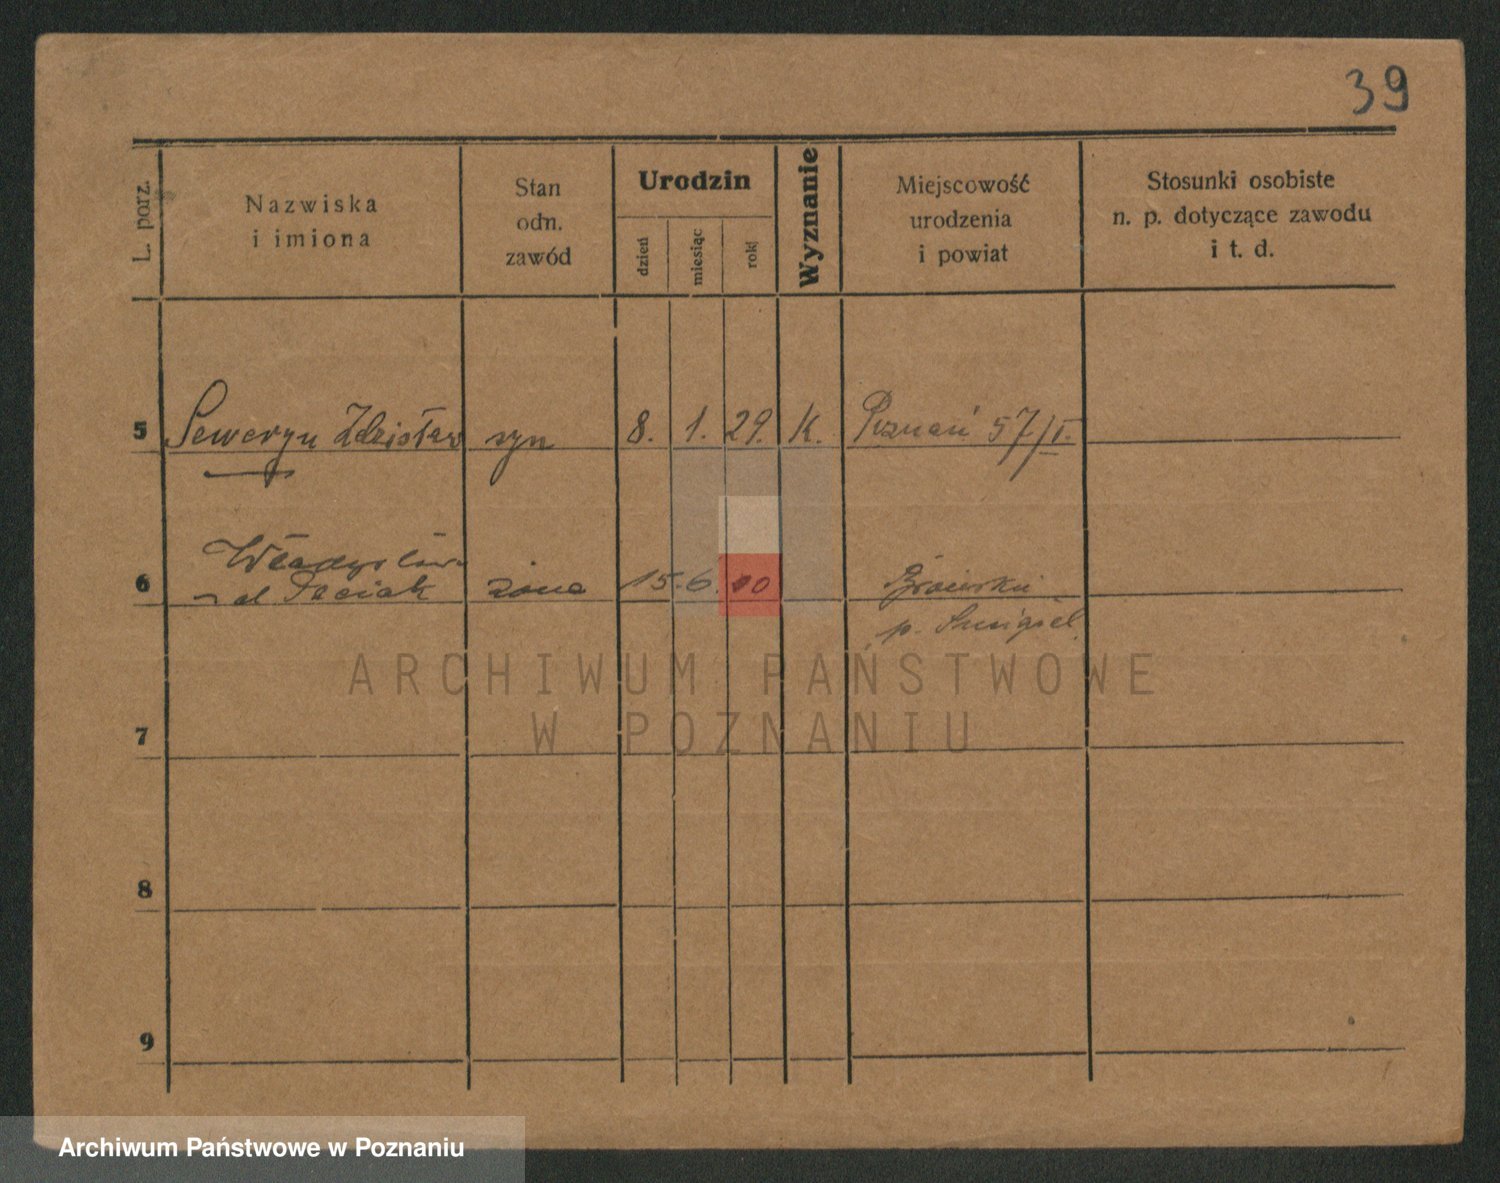 39
L. porz.
Nazwiska
i imiona
Stan
odn.
zawód
Urodzin
dzień
miesiąc
rok
Wyznanie
Miejscowość
urodzenia
i powiat
Stosunki osobiste
n. p. dotyczące zawodu
i t. d.
5 Seweryn Zdzisław syn 8. 1. 29. K. Poznań 57/I.
Władysława
6 żona 15. 6. 00
p. Śmigiel
ARCHIWUM PAŃSTWOWE
W POZNANIU
7
8
9
Archiwum Państwowe w Poznaniu